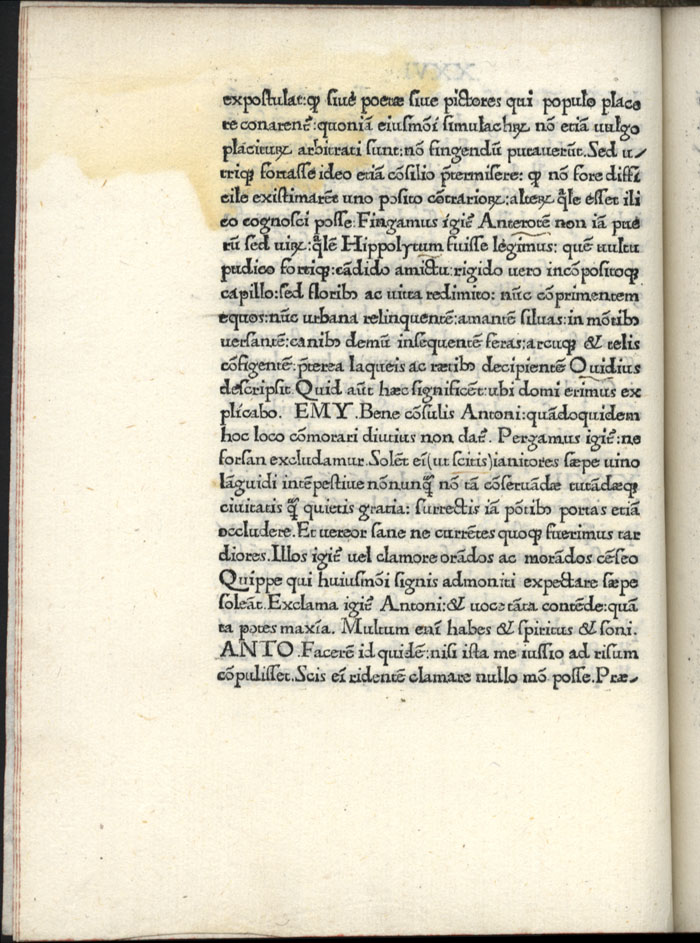 expostulat:ꝙ siue poetæ siue pictores qui populo place
re conarent᷑:quoniã eiusmõi simulachrꝝ nõ etiã uulgo
placiturꝝ arbitrati sunt:nõ fingendũ putauerũt.Sed u⸗
triqꝫ fortasse ideo etiã cõsilio p̃termisere: ꝙ nõ fore diffi
cile existimarẽt uno posito cõtrariorꝝ:alterꝝ q̃le esset ili
co cognosci posse.Fingamus igit᷑ Anterotẽ non iã pue
rũ sed uirꝝ:q̃lẽ Hippolytum fuisse legimus: quẽ uultu
pudico fortiqꝫ:cãdido amictu:rigido uero incõpositoqꝫ
capillo:sed floribꝫ ac uitta redimito: nũc cõprimentem
equos:nũc urbana relinquentẽ:amantẽ siluas:in mõtibꝫ
uersantẽ:canibꝫ demũ insequentẽ feras:arcuqꝫ & telis
cõfigentẽ:p̃terea laqueis ac rætibꝫ decipientẽ Ouidius
descripsit.Quid aũt hæc significẽt:ubi domi erimus ex
plicabo. EMY.Bene cõsulis Antoni:quãdoquidem
hoc loco cõmorari diutius non dat᷑. Pergamus igit᷑:ne
forsan excludamur.Solẽt ei᷑(ut scitis)ianitores sæpe uino
lãguidi intẽpestiue nõnunq̃ nõ tã cõseruãdæ tutãdæqꝫ
ciuitatis q̃ quietis gratia: surrectis iã põtibꝫ portas etiã
occludere.Et uereor sane ne currẽtes quoqꝫ fuerimus tar
diores.Illos igit᷑ uel clamore orãdos ac morãdos cẽseo
Quippe qui huiusmõi signis admoniti expectare sæpe
soleãt.Exclama igit᷑ Antoni:& uoce tãta contẽde:quã
ta potes maxĩa. Multum eni᷑ habes & spiritus & soni.
ANTO.Facerẽ id quidẽ:nisi ista me iussio ad risum
cõpulisset.Scis ei᷑ ridentẽ clamare nullo mõ posse.Præ⸗